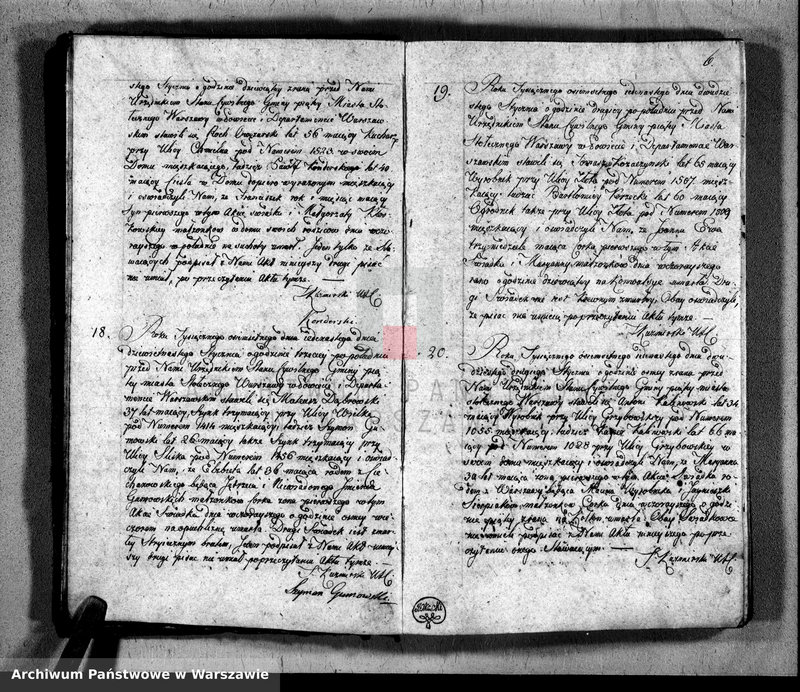 stego Stycznia o godzinie dziewiątey zrana przed Nami
Urzędnikiem Stanu Cywilnego Gminy piątey Miasta Sto-
łecznego Warszawy w Powiecie i Departamencie Warszaw-
skim stawił się Roch lat 56 maiący Kucharz
przy Ulicy pod Numerem 1573 w swoim
Domu mieszkaiący tudzież Paweł Konderskego lat 40
maiący Cieśla w Domu dopiero wyrażonym mieszkaiący
i oświadczyli Nam, że Franciszek rok i miesiąc maiący
Syn pierwszego w tym Akcie świadka i Małgorzaty
małżonków w domu swoich rodziców dnia wczo-
rayszego w południe na suchoty umarł. Jeden tylko ze Sta-
waiących podpisał z Nami Akt ninieyszy drugi pisać
nie umiał, po przeczytaniu Aktu tegoż. —
Kuzmirski UStC
Konderski
18. Roku Tysiącznego osiemsetnego iedenastego dnia
dziewiętnastego Stycznia o godzinie trzeciey po południu
przed Nami Urzędnikiem Stanu Cywilnego Gminy pią-
tey miasta Stołecznego Warszawy w Powiecie i Departa-
mencie Warszawskim stawili się Mateusz Dąbrowski
37 lat maiący, Szynk trzymaiący przy Ulicy Wielka
pod Numerem 1414 mieszkaiący, tudzież Szymon Gu-
mowski lat 26 maiący także Szynk trzymaiący przy
Ulicy Śliska pod Numerem 1456 mieszkaiący i oświad-
czyli Nam, że Elżbieta lat 36 maiąca rodem z Cie-
chanowskiego będąca Jędrzeia i Niewiadomey Imienia
Gumowskich małżonków Corka żona pierwszego w tym
Akcie Świadka dnia wczorayszego o godzinie osmey wie-
czorem na opuchlinę umarła. Drugi Świadek iest zmar-
łey Stryiecznym bratem, Jeden podpisał z Nami Akt niniey-
szy drugi pisać nie umiał po przeczytaniu Aktu tegoż. —
Kuzmirski UStC
Szymon Gumowski
6
19. Roku Tysiącznego osiemsetnego iedenastego dnia dwudzie-
stego Stycznia o godzinie drugiey po południu przed Nami
Urzędnikiem Stanu Cywilnego Gminy piątey Miasta
Stołecznego Warszawy w Powiecie i Departamencie War-
szawskim stawili się Ignacy lat 65 maiący
Wyrobnik przy Ulicy Złota pod Numerem 1507 miesz-
kaiący tudzież Bartłomiey lat 60 maiący
Ogrodnik także przy Ulicy Złota pod Numerem 1509
mieszkaiący i oświadczyli Nam, że Joanna Ewa
trzy niedziele maiąca Corka pierwszego w tym Akcie
Świadka i Maryanny małżonków dnia wczorayszego
rano o godzinie dziewiątey na konwulsye umarła. Dru-
gi Świadek nie iest krewnym zmarłey, Obay oświadczyli,
że pisać nie umieią po przeczytaniu Aktu tegoż. —
Kuzmirski UStC
20. Roku Tysiącznego osiemsetnego iedenastego dnia dwu-
dziestego drugiego Stycznia o godzinie osmey zrana przed
Nami Urzędnikiem Stanu Cywilnego Gminy piątey miasta
stołecznego Warszawy stawili się Antoni Kaliszewski lat 34
maiący Wyrobnik przy Ulicy Grzybowskiey pod Numerem
1055 mieszkaiący tudzież lat 66 ma-
iący pod Numerem 1028 przy Ulicy Grzybowskiey w
swoim domu mieszkaiący i oświadczyli Nam, że Maryanna
lat maiąca żona pierwszego w tym Akcie Świadka ro-
dem z Warszawy będąca Macieia Wyrobnika i Agnieszki
małżonków Corka dnia wczorayszego o godzi-
nie piątey zrana na umarła. Obay Świadkowie
nie umieli podpisać z Nami Aktu ninieyszego po prze-
czytaniu onego Stawaiącym. —
Kuzmirski UStC
Archiwum Państwowe w Warszawie